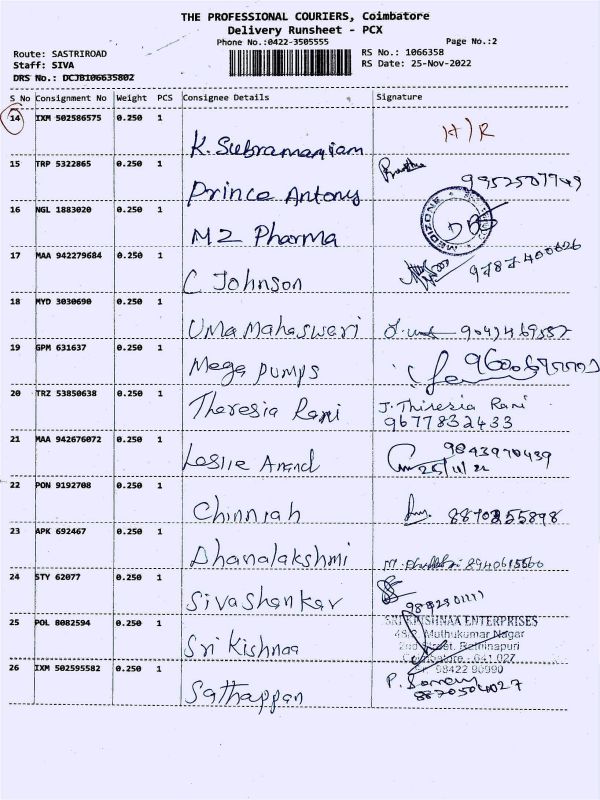 THE PROFESSIONAL COURIERS, Coimbatore
Delivery Runsheet - PCX
Phone No.:0422-3505555
Page No.:2
Route: SASTRIROAD
RS No.: 1066358
Staff: SIVA
RS Date: 25-Nov-2022
DRS No.: DCJB106635802
S No Consignment No Weight PCS Consignee Details Signature
14 IXM 502586575 0.250 1
K. Subramaniam H/R
15 TRP 5322865 0.250 1
Prince Antony
16 NGL 1883020 0.250 1
MZ Pharma MEDIZONE
17 MAA 942279684 0.250 1
C Johnson
18 MYD 3030690 0.250 1
Uma Mahaswari
19 GPM 631637 0.250 1
Mega Pumps
20 TRZ 53850638 0.250 1
Theresia Rani J. Thiresia Rani
9677832433
21 MAA 942676072 0.250 1
Leslie Anand 9843970439
25/11/22
22 PON 9192708 0.250 1
Chinniah 8870255898
23 APK 692467 0.250 1
Dhanalakshmi
24 STY 62077 0.250 1
Sivashankar
25 POL 8082594 0.250 1
Sri Kishnaa
SRI KRISHNAA ENTERPRISES
Muthukumar Nagar
2nd Street, Rathinapuri
Coimbatore - 641 027
98422 90990
26 IXM 502595582 0.250 1
Sathappan